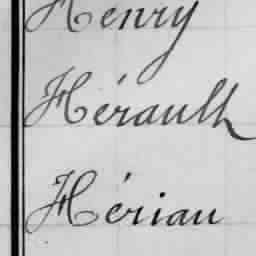 Henry
Hérault
Hériau